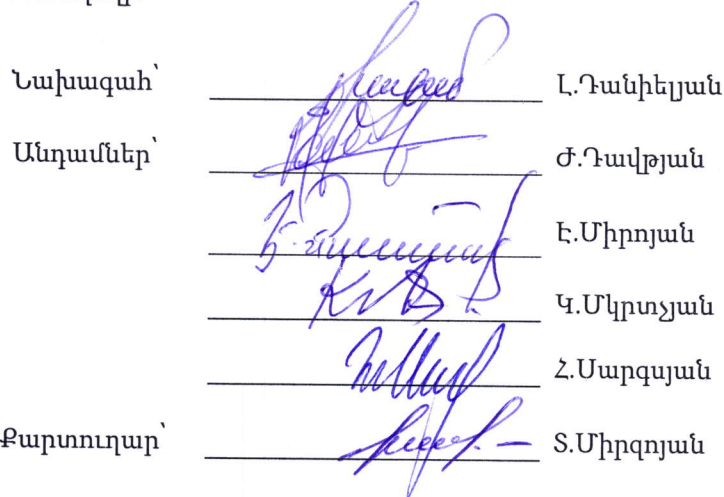 Նախագահ՝ Լ.Դանիելյան
Անդամներ՝ Ժ.Դավթյան
Է.Միրոյան
Կ.Մկրտչյան
Հ.Սարգսյան
Քարտուղար՝ Տ.Միրզոյան